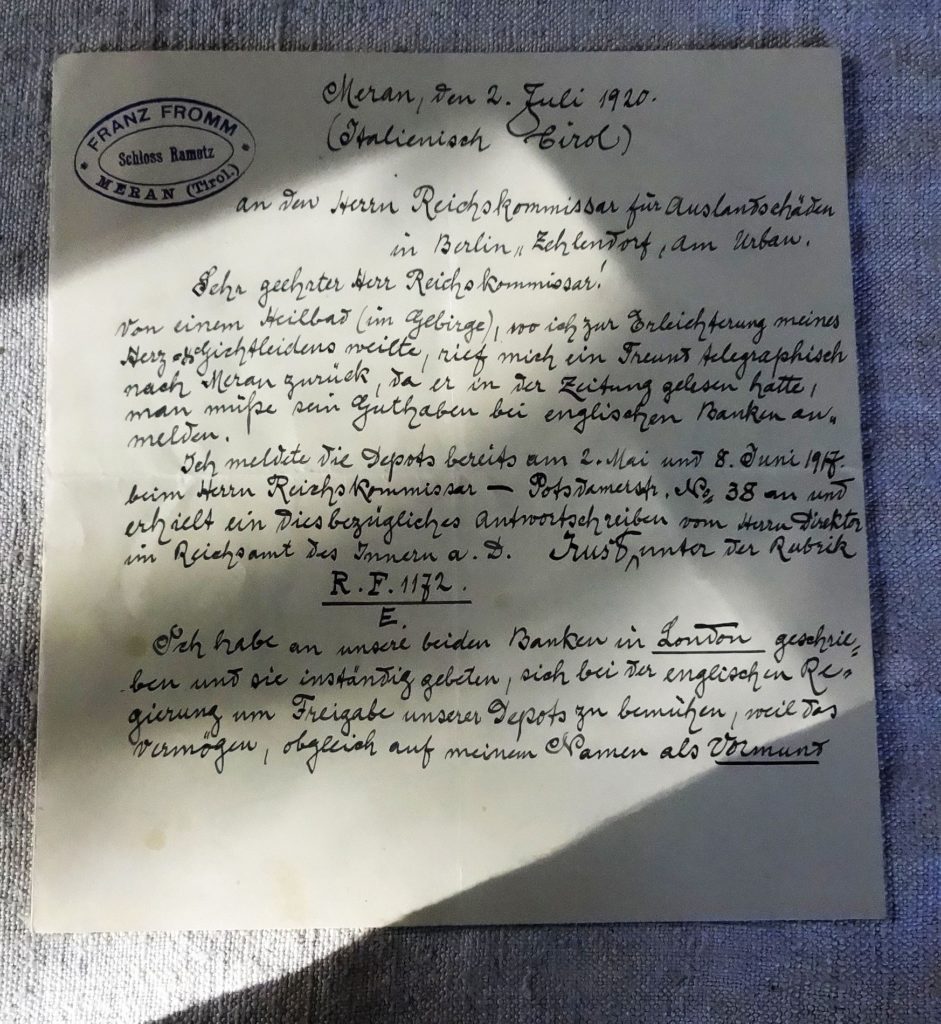 FRANZ FROMM
Schloss Rametz
MERAN (Tirol.)
Meran, den 2. Juli 1920.
(Italienisch Tirol)
an den Herrn Reichskommissar für Auslandschäden
in Berlin „ Zehlendorf, am Urban.
Sehr geehrter Herr Reichskommissar!
Von einem Heilbad (im Gebirge), wo ich zur Erleichterung meines
Herz- & Gichtleidens weilte, rief mich ein Freund telegraphisch
nach Meran zurück, da er in der Zeitung gelesen hatte,
man müße sein Guthaben bei englischen Banken an„
melden.
Ich meldete die Depots bereits am 2. Mai und 8. Juni 1917
beim Herrn Reichskommissar — Potsdamerstr. No. 38 an und
erhielt ein diesbezügliches Antwortschreiben vom Herrn Direktor
im Reichsamt des Innern a. D. Just, unter der Rubrik
R. F. 1172.
E.
Ich habe an unsere beiden Banken in London geschrie„
ben und sie inständig gebeten, sich bei der englischen Re„
gierung um Freigabe unserer Depots zu bemühen, weil das
Vermögen, obgleich auf meinem Namen als Vormund